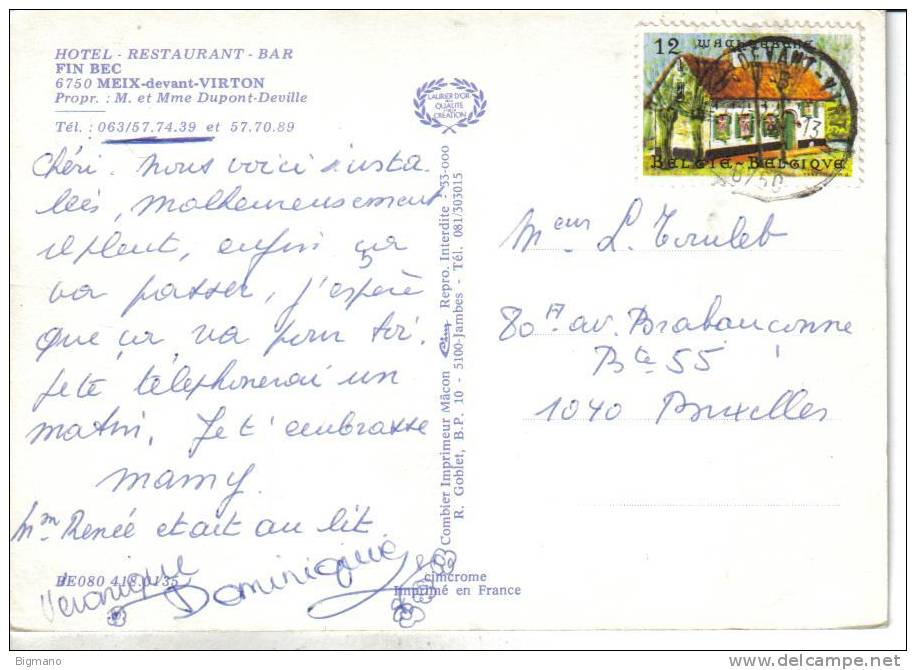 HOTEL - RESTAURANT - BAR
FIN BEC
6750 MEIX-devant-VIRTON
Propr. : M. et Mme Dupont-Deville
Tél. : 063/57.74.39 et 57.70.89
Chéri. Nous voici insta
lées, malheureusement
il pleut, enfin ça
va passer, j'espère
que ça va pour toi.
Je te téléphonerai un
matin. Je t'embrasse
mamy.
Mme Renée etait au lit.
Véronique
Dominique
BE080 418.0135
cimcrome
Imprimé en France
LAURIER D'OR
DE LA
QUALITÉ
CRÉATION
Combier Imprimeur Mâcon Cim Repro. Interdite - 53-000
R. Goblet, B.P. 10 - 5100-Jambes - Tél. 081/303015
12
BELGIË-BELGIQUE
DEVANT-V
13
6750
Meur L. Toulet
80A av. Brabançonne
Bte 55
1040 Bruxelles
Bigmano
www.delcampe.net